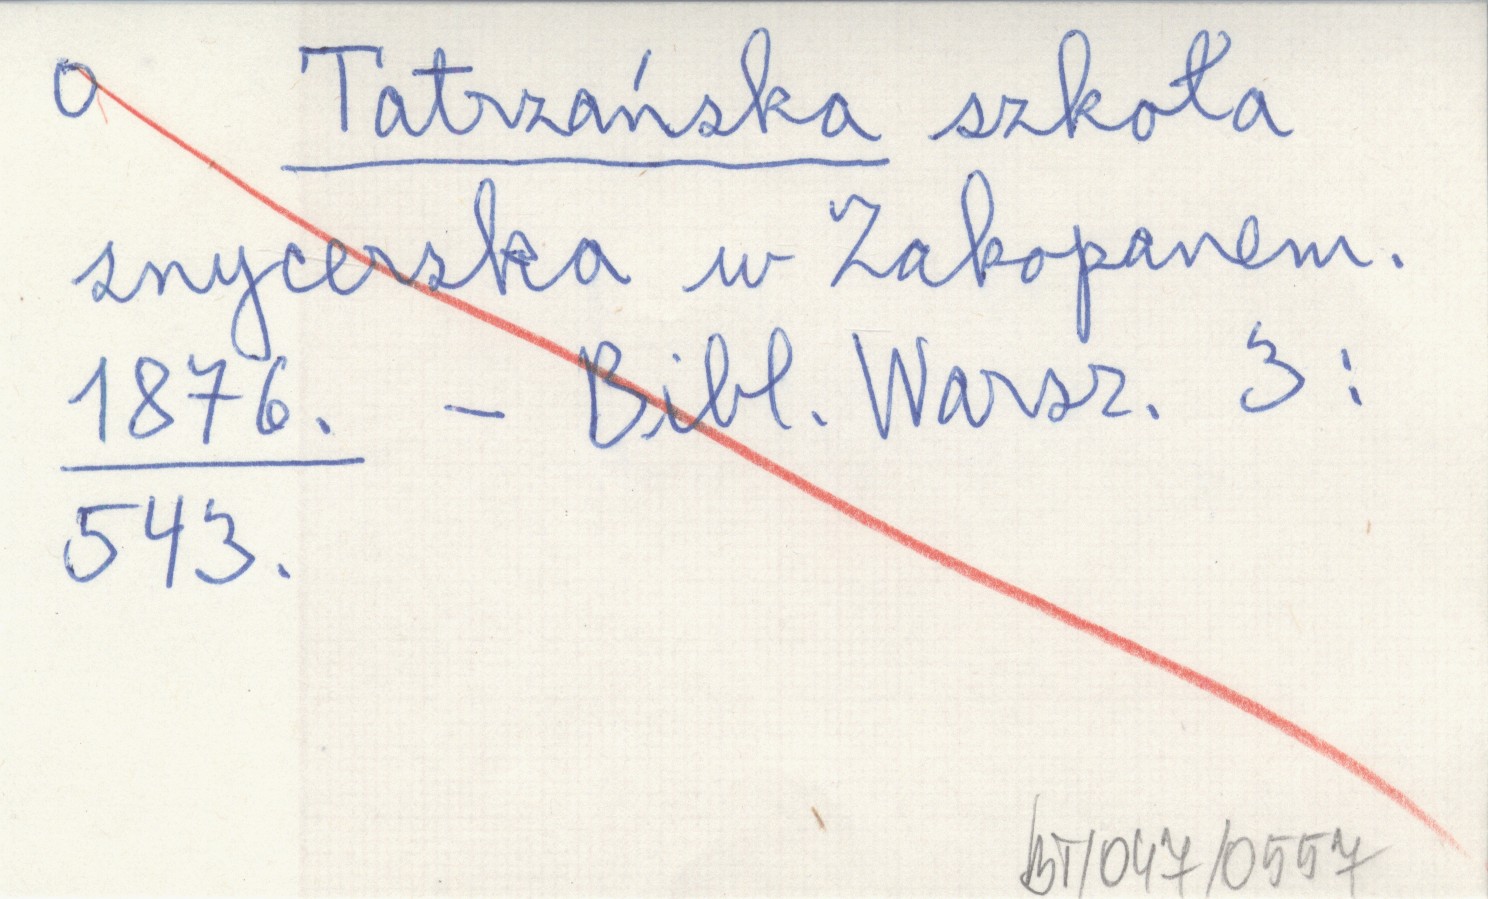 O Tatrzańska szkoła
snycerska w Zakopanem.
1876. – Bibl. Warsz. 3:
543.
BT/047/0557